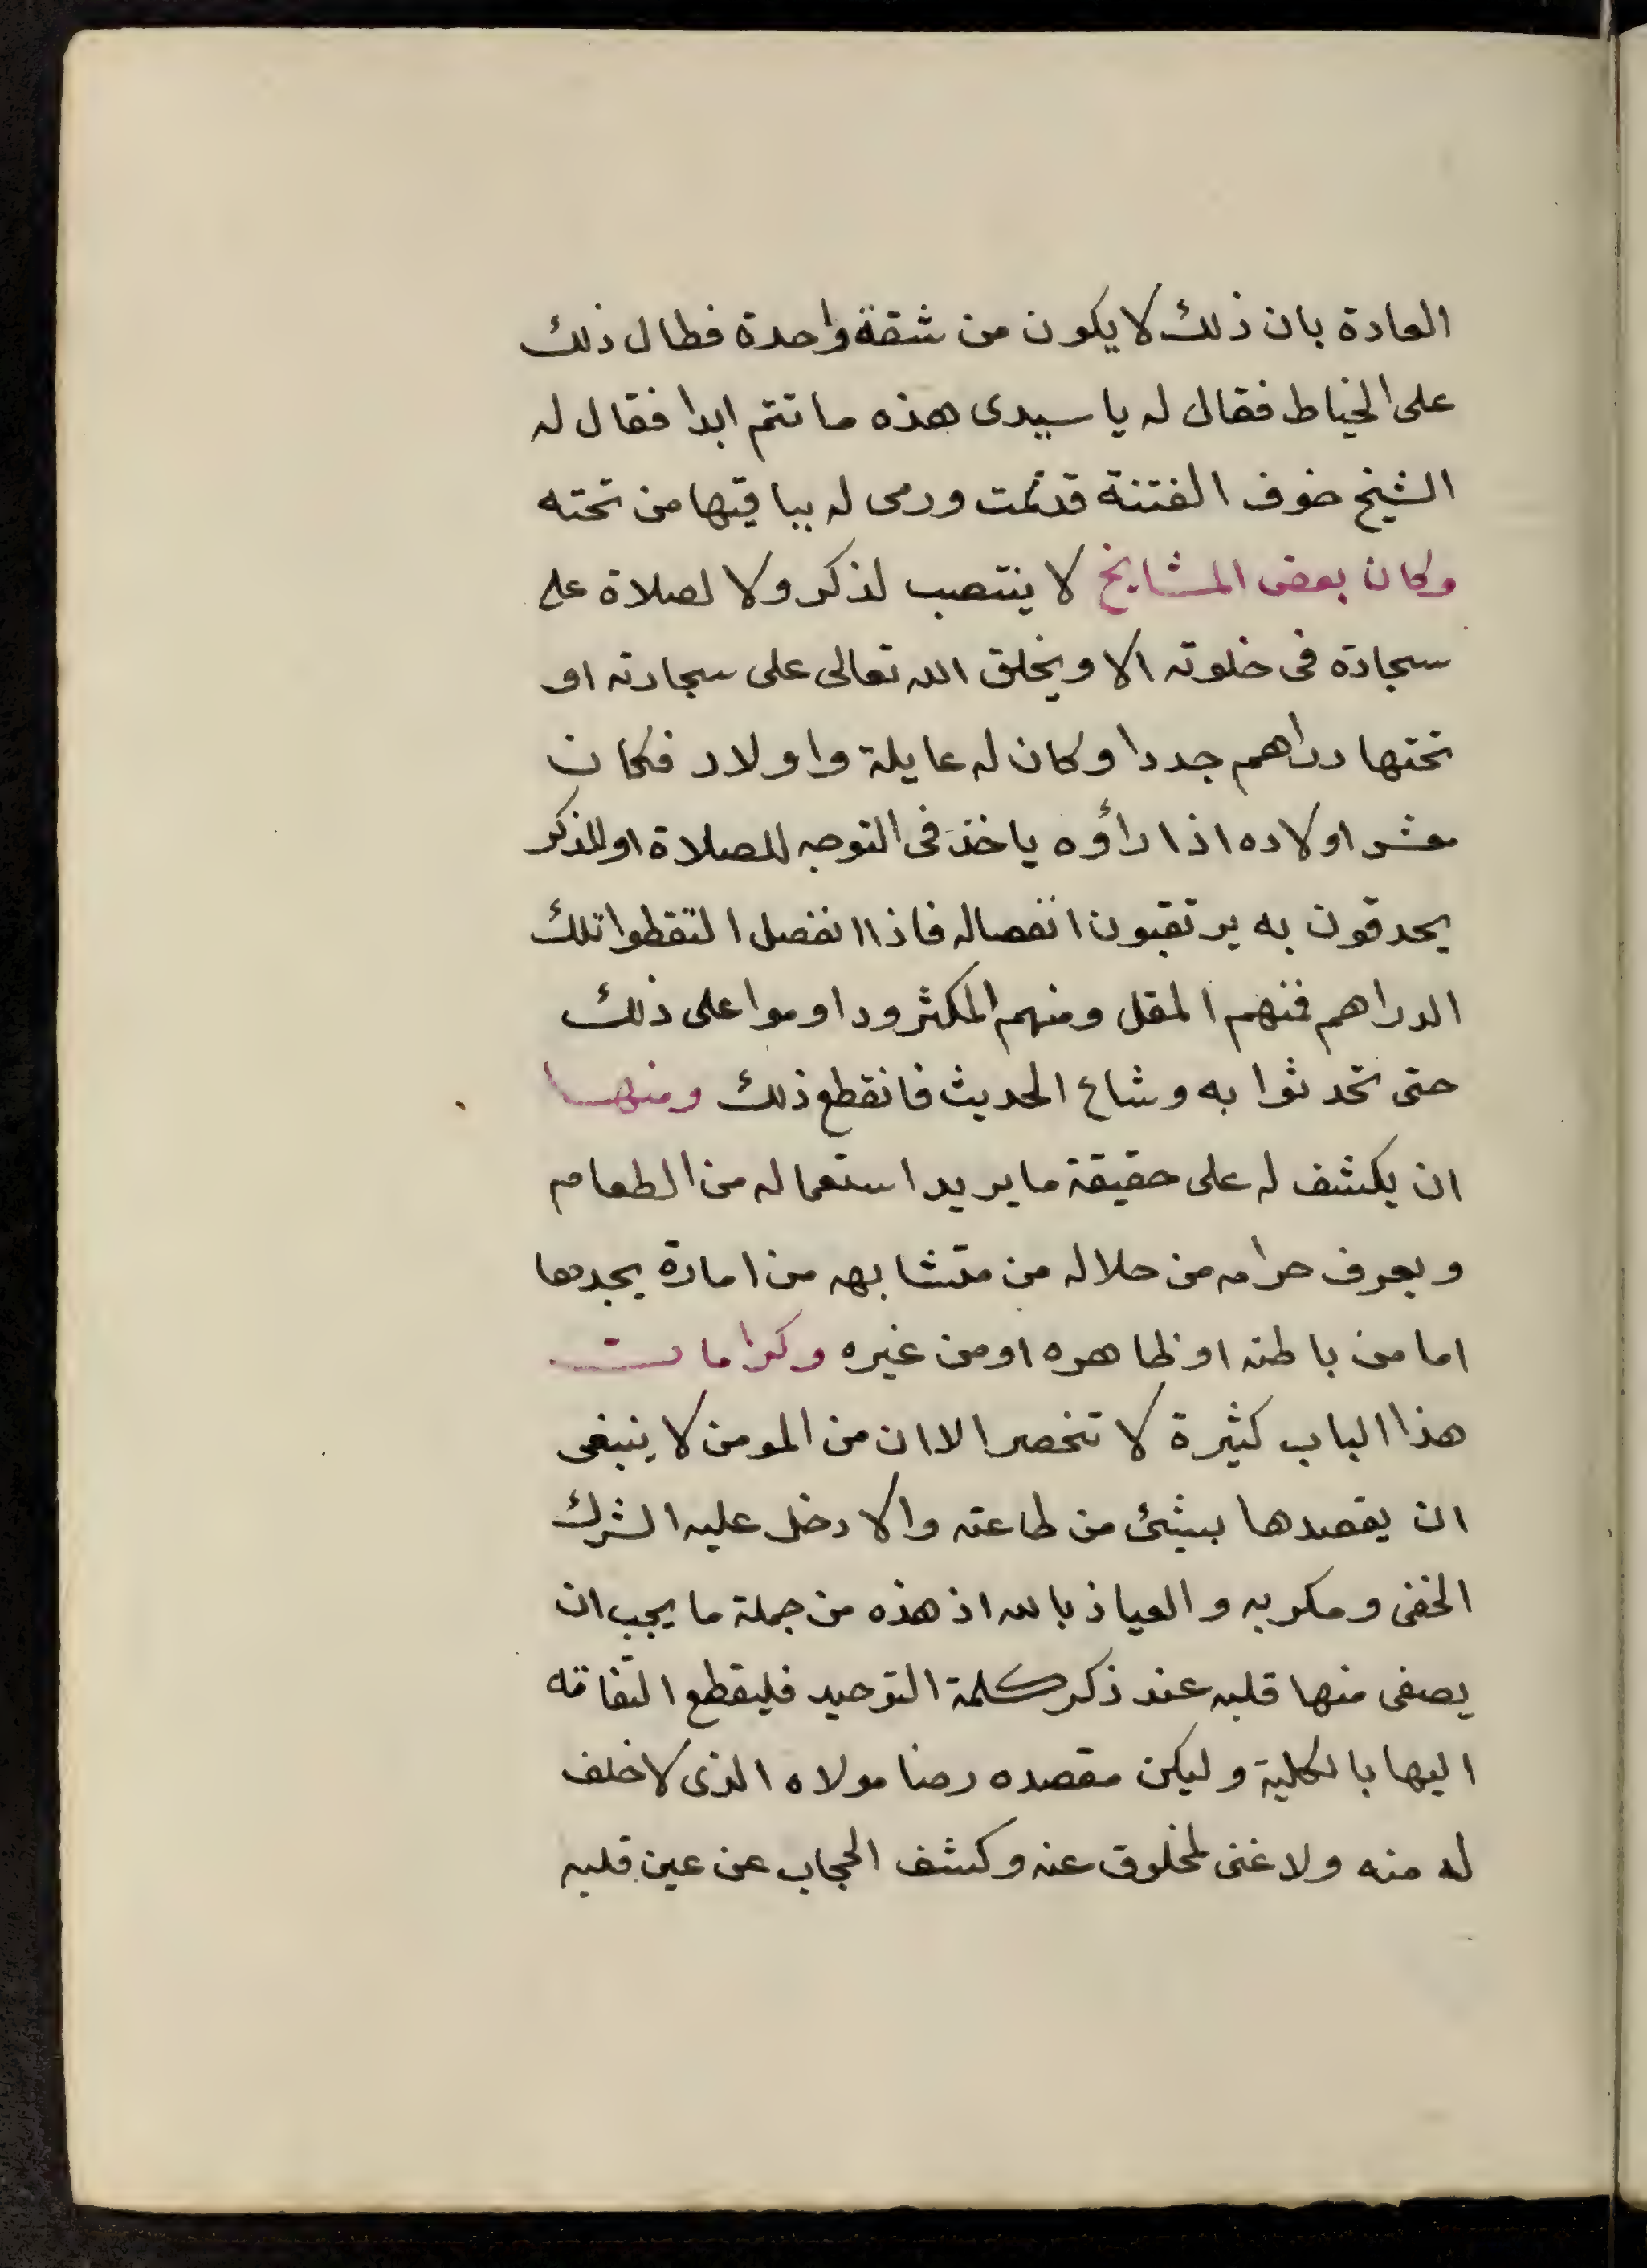 العادة بان ذلك لا يكون من شقة واحدة فطال ذلك
على الخياط فقال له يا سيدى هذه ما تتم ابدا فقال له
الشيخ خوف الفتنة قد تمت ورمى له بباقيها من تحته
وكان بعض المشايخ لا ينتصب لذكر ولا لصلاة على
سجادة فى خلوته الا ويخلق الله تعالى على سجادته او
تحتها دراهم جددا وكان له عايلة واولاد فكان
معشر اولاده اذا رأوه ياخذ فى التوجه للصلاة او للذكر
يحدقون به يرتقبون انفصاله فاذا انفصل التقطوا تلك
الدراهم فمنهم المقل ومنهم المكثر وداوموا على ذلك
حتى تحدثوا به وشاع الحديث فانقطع ذلك ومنها
ان يكشف له على حقيقة ما يريد استعماله من الطعام
ويعرف حرامه من حلاله من متشابهه من امارة يجدها
اما من باطنه او ظاهره او من غيره وكرامات
هذا الباب كثيرة لا تنحصر الا ان من المومن لا ينبغى
ان يقصدها بشئ من طاعته والا دخل عليه الشرك
الخفى ومكر به والعياذ بالله اذ هذه من جملة ما يجب ان
يصفى منها قلبه عند ذكر كلمة التوحيد فليقطع التفاته
اليها بالكلية وليكن مقصده رضا مولاه الذى لا خلف
له منه ولا غنى لمخلوق عنه وكشف الحجاب عن عين قلبه